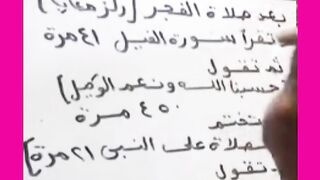 بعد صلاة الفجر (ركز معايا)
تقرأ سورة الفيل ٤١ مرة
ثم تقول
(حسبنا الله ونعم الوكيل)
٤٥٠ مرة
تختم
صلاة على النبي ٢١ مرة)
تقول